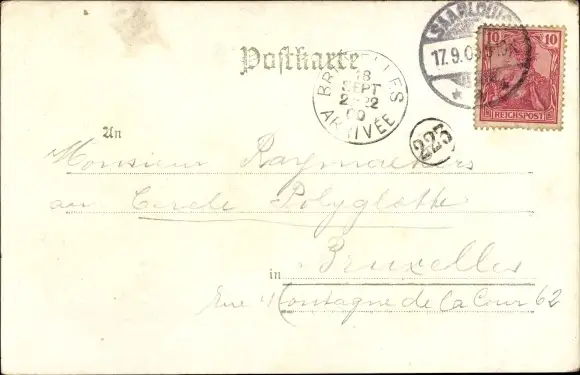 Postkarte
SAARLOUIS
17.9.0
10 10
REICHSPOST
BRUXELLES
18
SEPT
00
ARRIVÉE
225
An
Monsieur Raymaekers
au Cercle Polyglotte
in Bruxelles
Montagne de la Cour 62